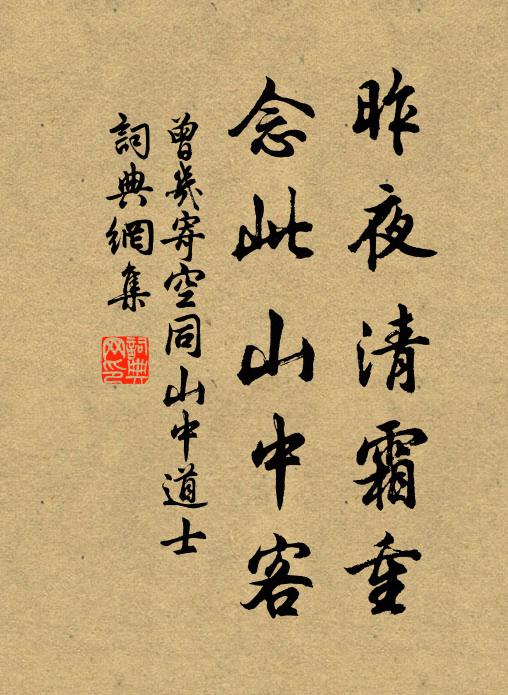 昨夜清霜重
念此山中客
曾幾寄空同山中道士
詞典網集
詞典
网印